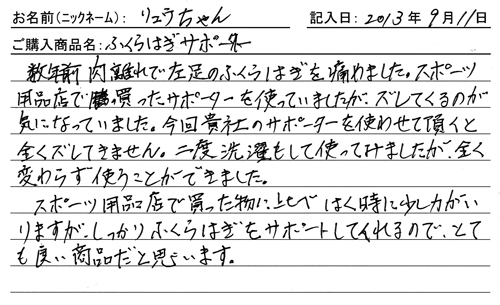 お名前(ニックネーム): リュウちゃん 記入日: 2013年 9月11日
ご購入商品名: ふくらはぎサポーター
数年前 肉離れで左足のふくらはぎを痛めました。スポーツ
用品店で購買ったサポーターを使っていましたが、ズレてくるのが
気になっていました。今回貴社のサポーターを使わせて頂くと
全くズレてきません。二度洗濯もして使ってみましたが、全く
変わらず使うことができました。
スポーツ用品店で買った物に比べ はく時に少し力がい
りますが、しっかりふくらはぎをサポートしてくれるので、とて
も良い商品だと思います。